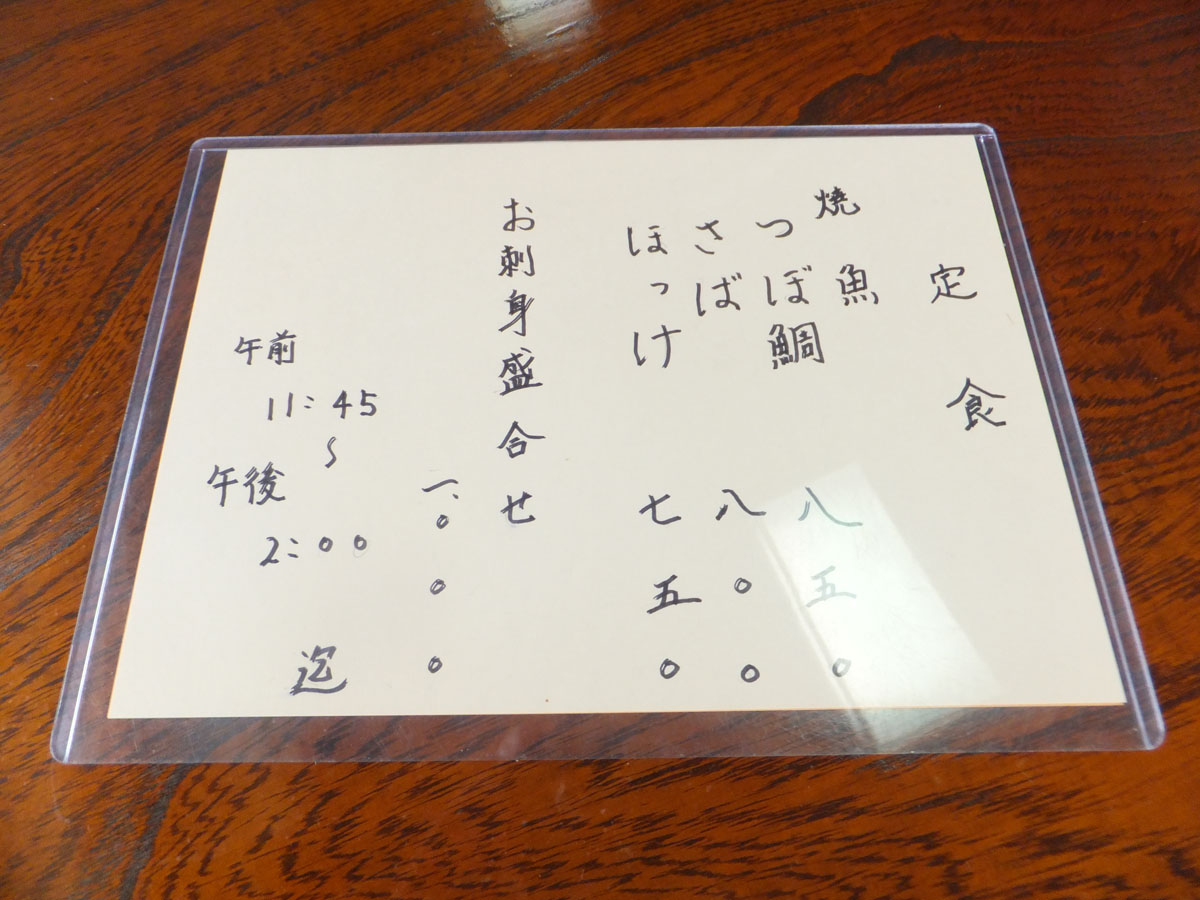 定食
焼魚
つぼ鯛 八五〇
さば 八〇〇
ほっけ 七五〇
お刺身盛合せ
一、〇〇〇
午前
11:45
〜
午後
2:00
迄